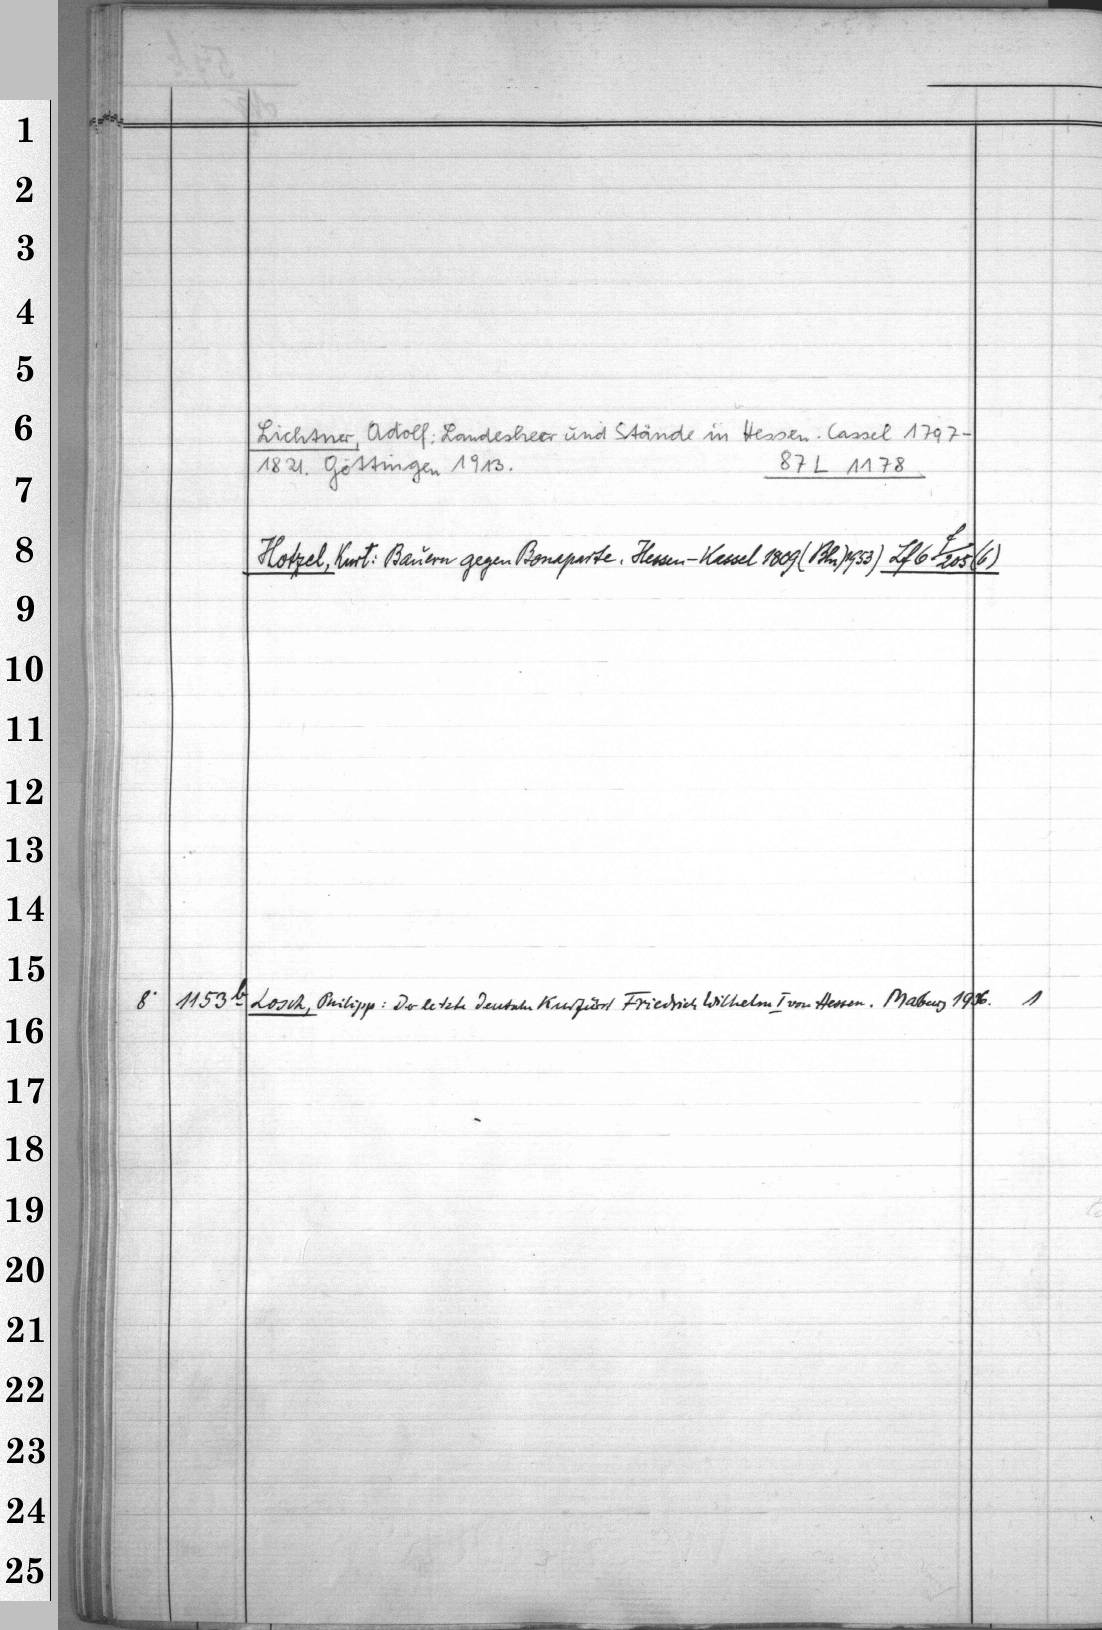 1
2
3
4
5
6
Lichtner, Adolf: Landesherr und Stände in Hessen-Cassel 1797-
1821. Göttingen 1913. 87 L 1178
7
8
Hotzel, Kurt: Bauern gegen Bonaparte. Hessen-Kassel 1809 (Bln 1953) Lf 6 205 (6)
9
10
11
12
13
14
15
8° 1153 b Losch, Philipp: Der letzte deutsche Kurfürst Friedrich Wilhelm I von Hessen. Marburg 1936. 1
16
17
18
19
20
21
22
23
24
25